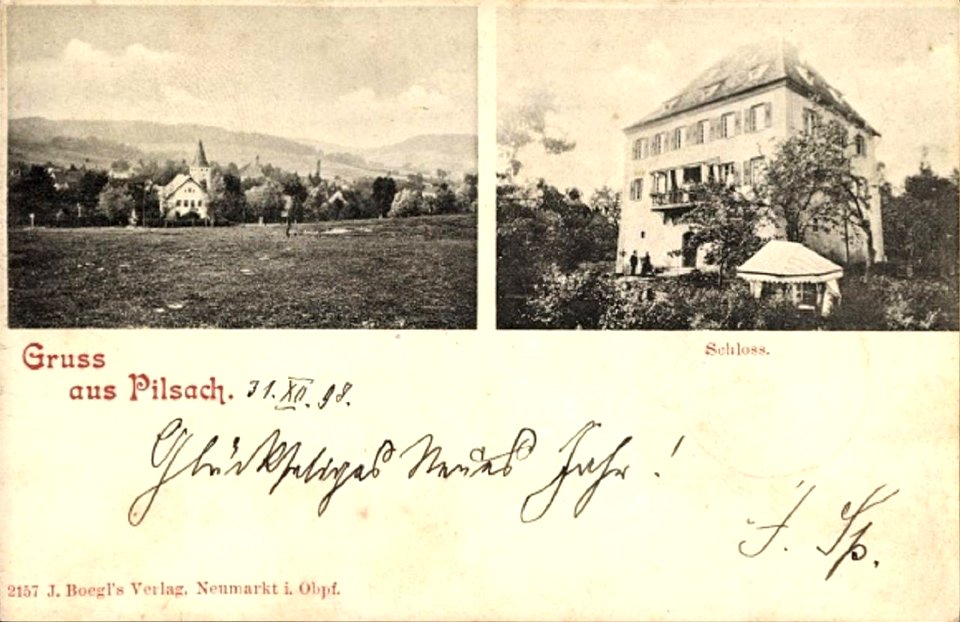 Schloss.
Gruss
aus Pilsach. 31. XII. 98.
Glückseliges Neues Jahr !
J. Sp.
2157 J. Boegl's Verlag, Neumarkt i. Obpf.